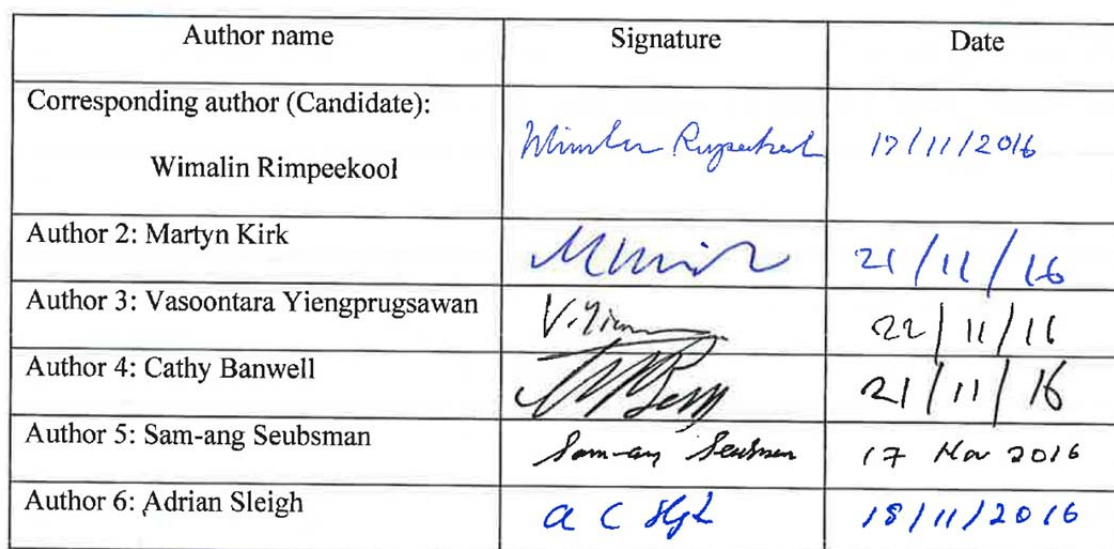 Author name Signature Date
Corresponding author (Candidate):
Wimalin Rimpeekool Wimalin Rimpeekool 17/11/2016
Author 2: Martyn Kirk 21/11/16
Author 3: Vasoontara Yiengprugsawan 22/11/16
Author 4: Cathy Banwell 21/11/16
Author 5: Sam-ang Seubsman Sam-ang Seubsman 17 Nov 2016
Author 6: Adrian Sleigh 18/11/2016